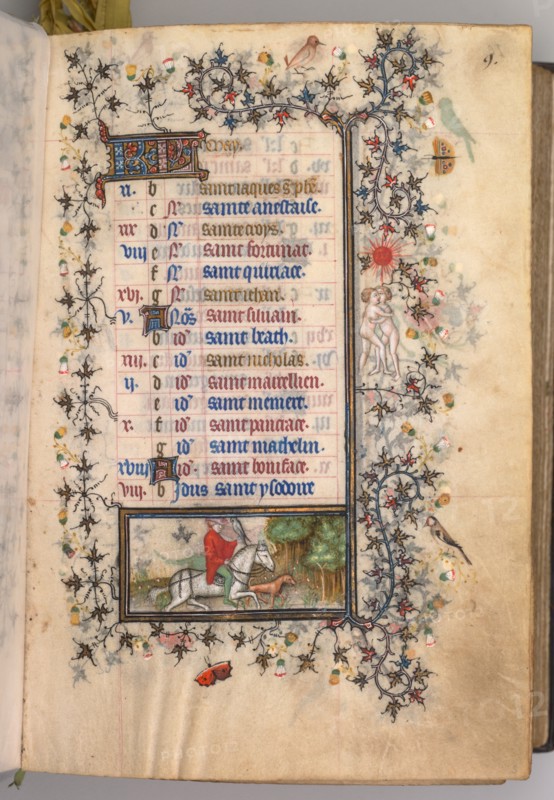 9.
KL may.
ii. b saint iaques s. phe.
c N saincte anestaise.
xix d N saincte crois.
viii e N saint fortunat.
f N saint quiriace.
xvi. g N saint iehan.
v. A Nōs saint siluain.
b id saint beath.
xiii. c id saint nicholas.
ii. d id saint maurellien.
e id saint memert.
x. f id saint pancrace.
g id saint mathelin.
xviii A id. saint boniface.
viii. b Idus saint ysodoire